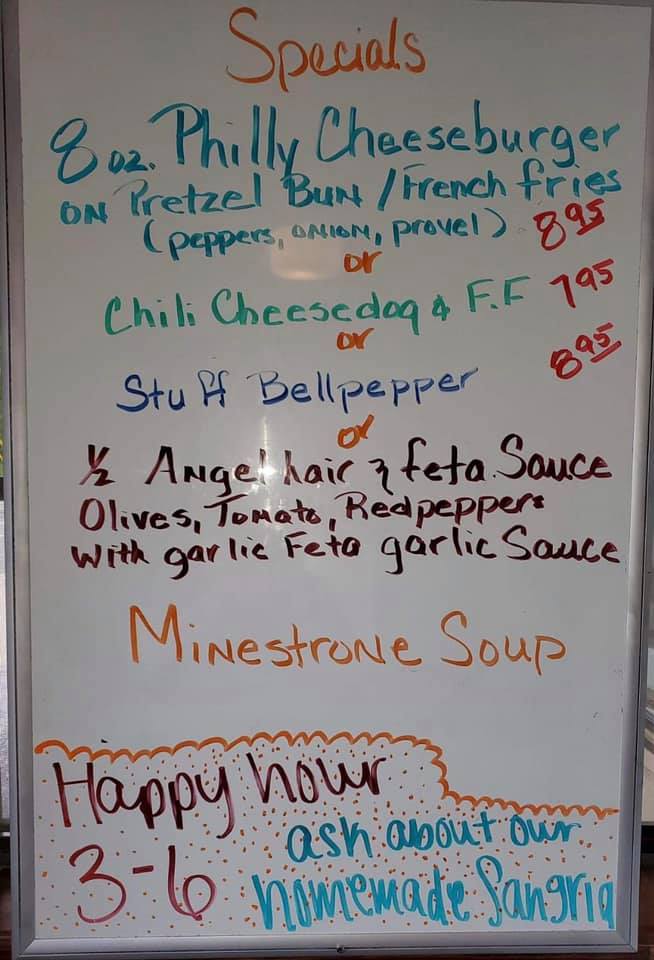 Specials
8 oz. Philly Cheeseburger
on Pretzel Bun / French fries
(peppers, onion, provel) 8.95
or
Chili Cheesedog & F.F 7.95
or
Stuff Bellpepper 8.95
or
1/2 Angel hair & feta Sauce
Olives, Tomato, Redpeppers
with garlic Feta garlic Sauce
Minestrone Soup
Happy hour
3-6
ask about our
homemade Sangria